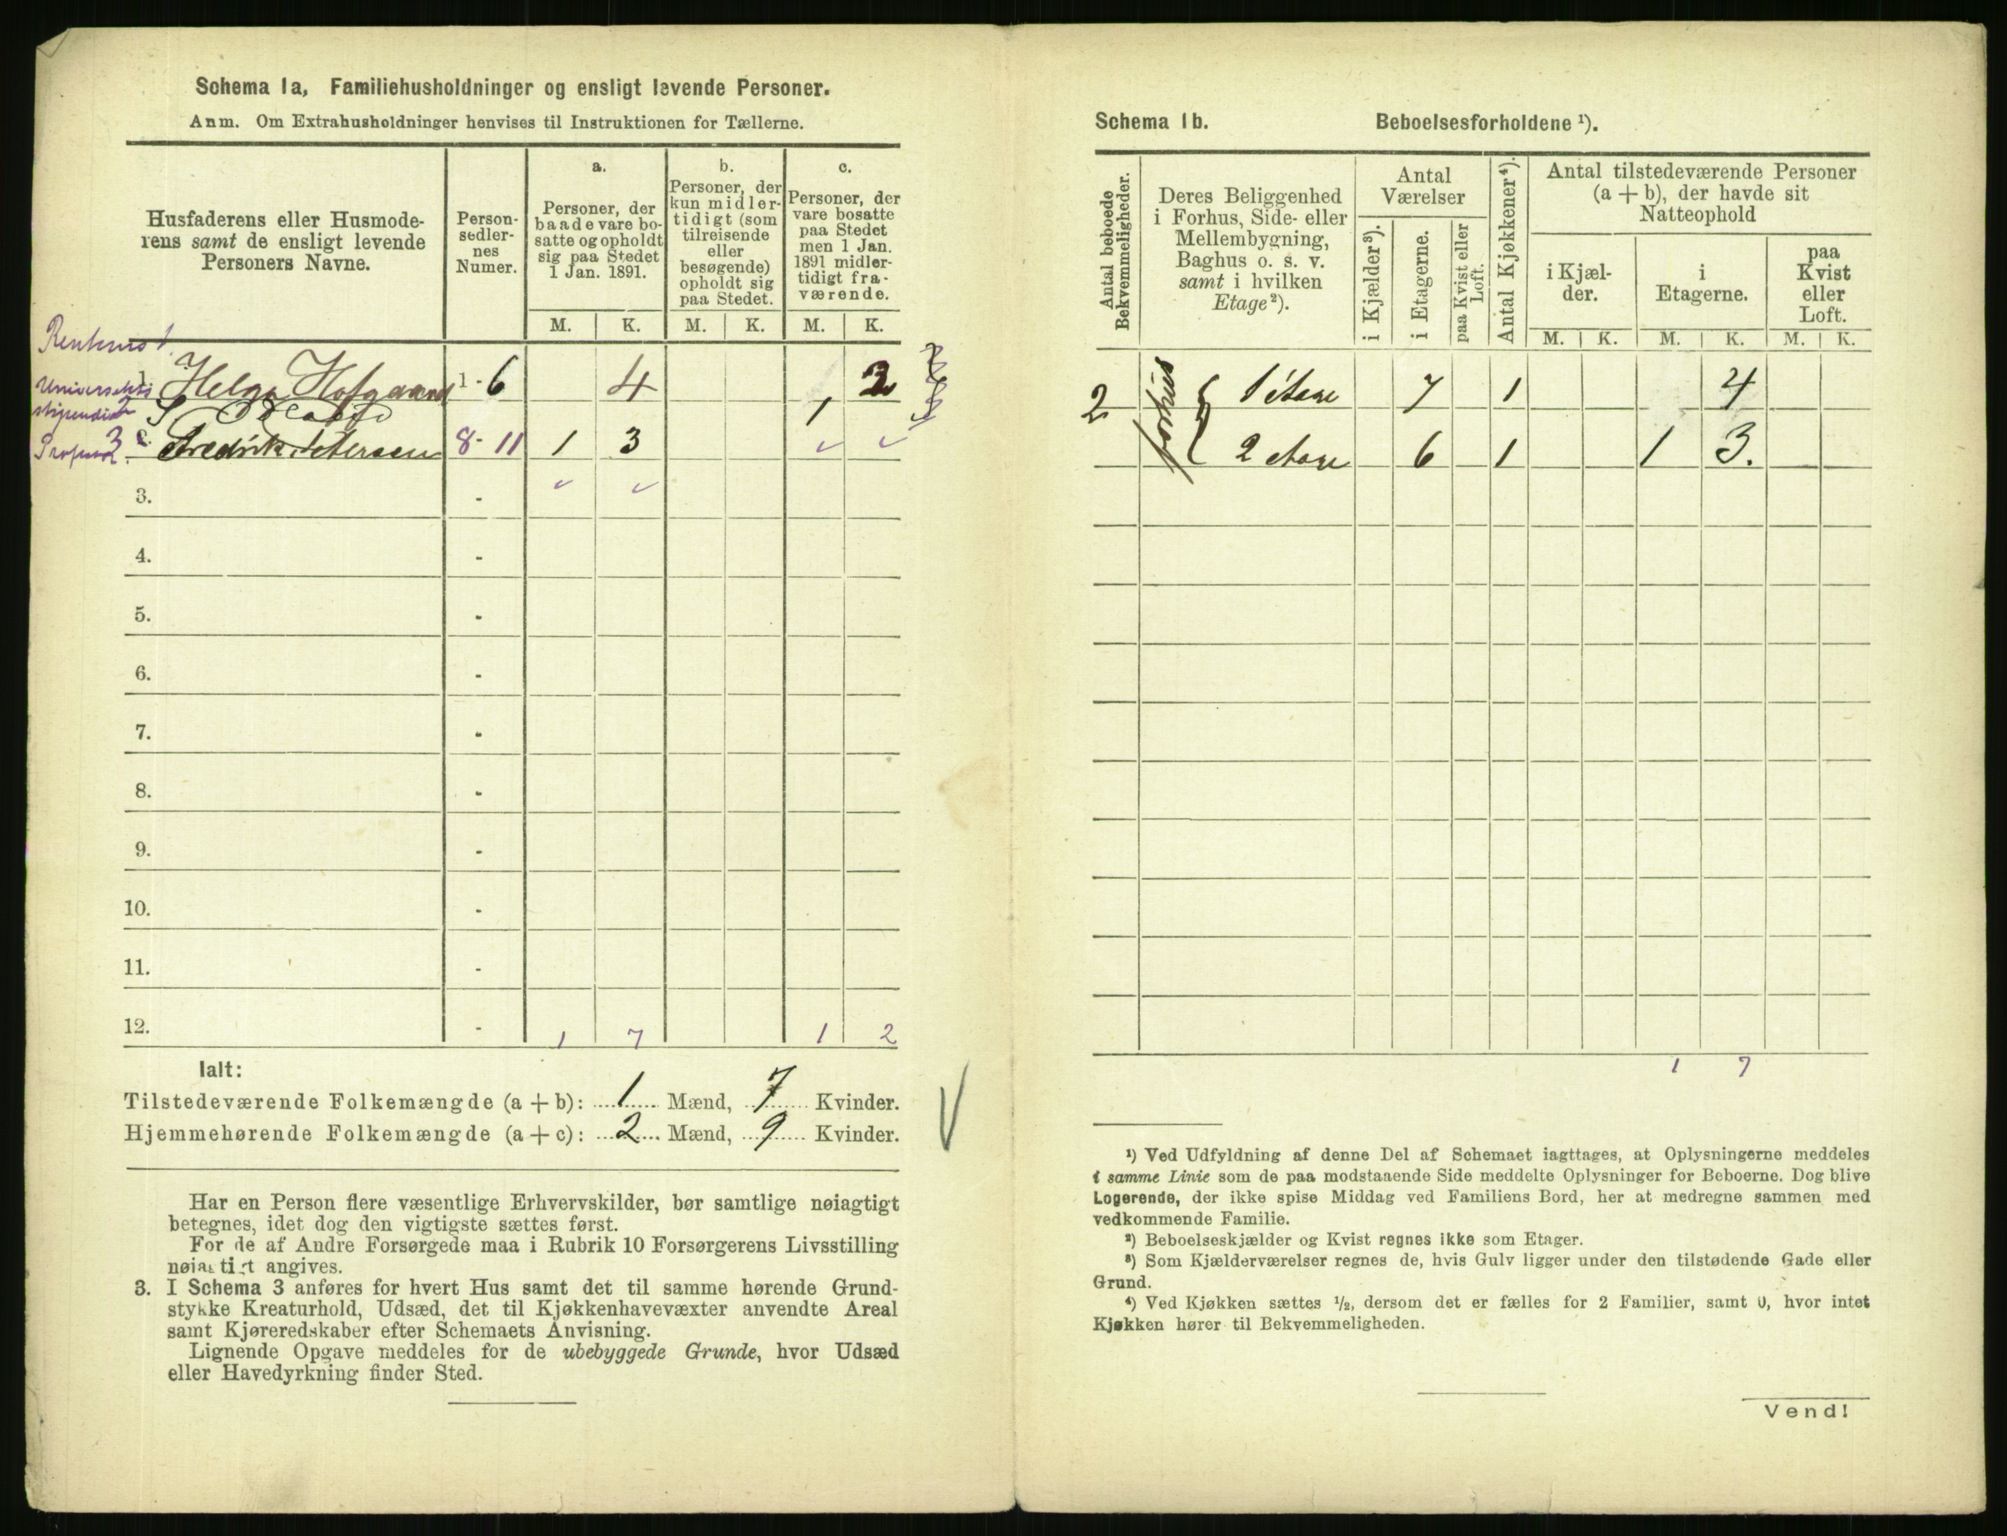 Schema 1a, Familiehusholdninger og ensligt levende Personer.
Anm. Om Extrahusholdninger henvises til Instruktionen for Tællerne.
Husfaderens eller Husmode-
rens samt de ensligt levende
Personers Navne.
Person-
sedler-
nes
Numer.
a.
Personer, der
baade vare bo-
satte og opholdt
sig paa Stedet
1 Jan. 1891.
b.
Personer, der
kun midler-
tidigt (som
tilreisende
eller
besøgende)
opholdt sig
paa Stedet.
c.
Personer, der
vare bosatte
paa Stedet
men 1 Jan.
1891 midler-
tidigt fra-
værende.
M. K. M. K. M. K.
1. Helga Hofgaard 1 - 6 4 2
Universitets
stipendiat 2 1
3 2. Fredrik Petersen 8 - 11 1 3
3. -
4. -
5. -
6. -
7. -
8. -
9. -
10. -
11. -
12. - 1 7 1 2
Ialt:
Tilstedeværende Folkemængde (a + b): 1 Mænd, 7 Kvinder.
Hjemmehørende Folkemængde (a + c): 2 Mænd, 9 Kvinder.
Har en Person flere væsentlige Erhvervskilder, bør samtlige nøiagtigt
betegnes, idet dog den vigtigste sættes først.
For de af Andre Forsørgede maa i Rubrik 10 Forsørgerens Livsstilling
nøiagtigt angives.
3. I Schema 3 anføres for hvert Hus samt det til samme hørende Grund-
stykke Kreaturhold, Udsæd, det til Kjøkkenhavevæxter anvendte Areal
samt Kjøreredskaber efter Schemaets Anvisning.
Lignende Opgave meddeles for de ubebyggede Grunde, hvor Udsæd
eller Havedyrkning finder Sted.
Schema 1b. Beboelsesforholdene ¹).
Antal beboede
Bekvemmeligheder.
Deres Beliggenhed
i Forhus, Side- eller
Mellembygning,
Baghus o. s. v.
samt i hvilken
Etage ²).
Antal
Værelser
i Kjælder ³).
i Etagerne.
paa Kvist eller
Loft.
Antal Kjøkkener ⁴).
Antal tilstedeværende Personer
(a + b), der havde sit
Natteophold
i Kjæl-
der.
i
Etagerne.
paa
Kvist
eller
Loft.
M. K. M. K. M. K.
2 forhus 1 étage 7 1 4
2 etage 6 1 1 3.
1 7
¹) Ved Udfyldning af denne Del af Schemaet iagttages, at Oplysningerne meddeles
i samme Linie som de paa modstaaende Side meddelte Oplysninger for Beboerne. Dog blive
Logerende, der ikke spise Middag ved Familiens Bord, her at medregne sammen med
vedkommende Familie.
²) Beboelseskjælder og Kvist regnes ikke som Etager.
³) Som Kjælderværelser regnes de, hvis Gulv ligger under den tilstødende Gade eller
Grund.
⁴) Ved Kjøkken sættes ½, dersom det er fælles for 2 Familier, samt 0, hvor intet
Kjøkken hører til Bekvemmeligheden.
Vend!